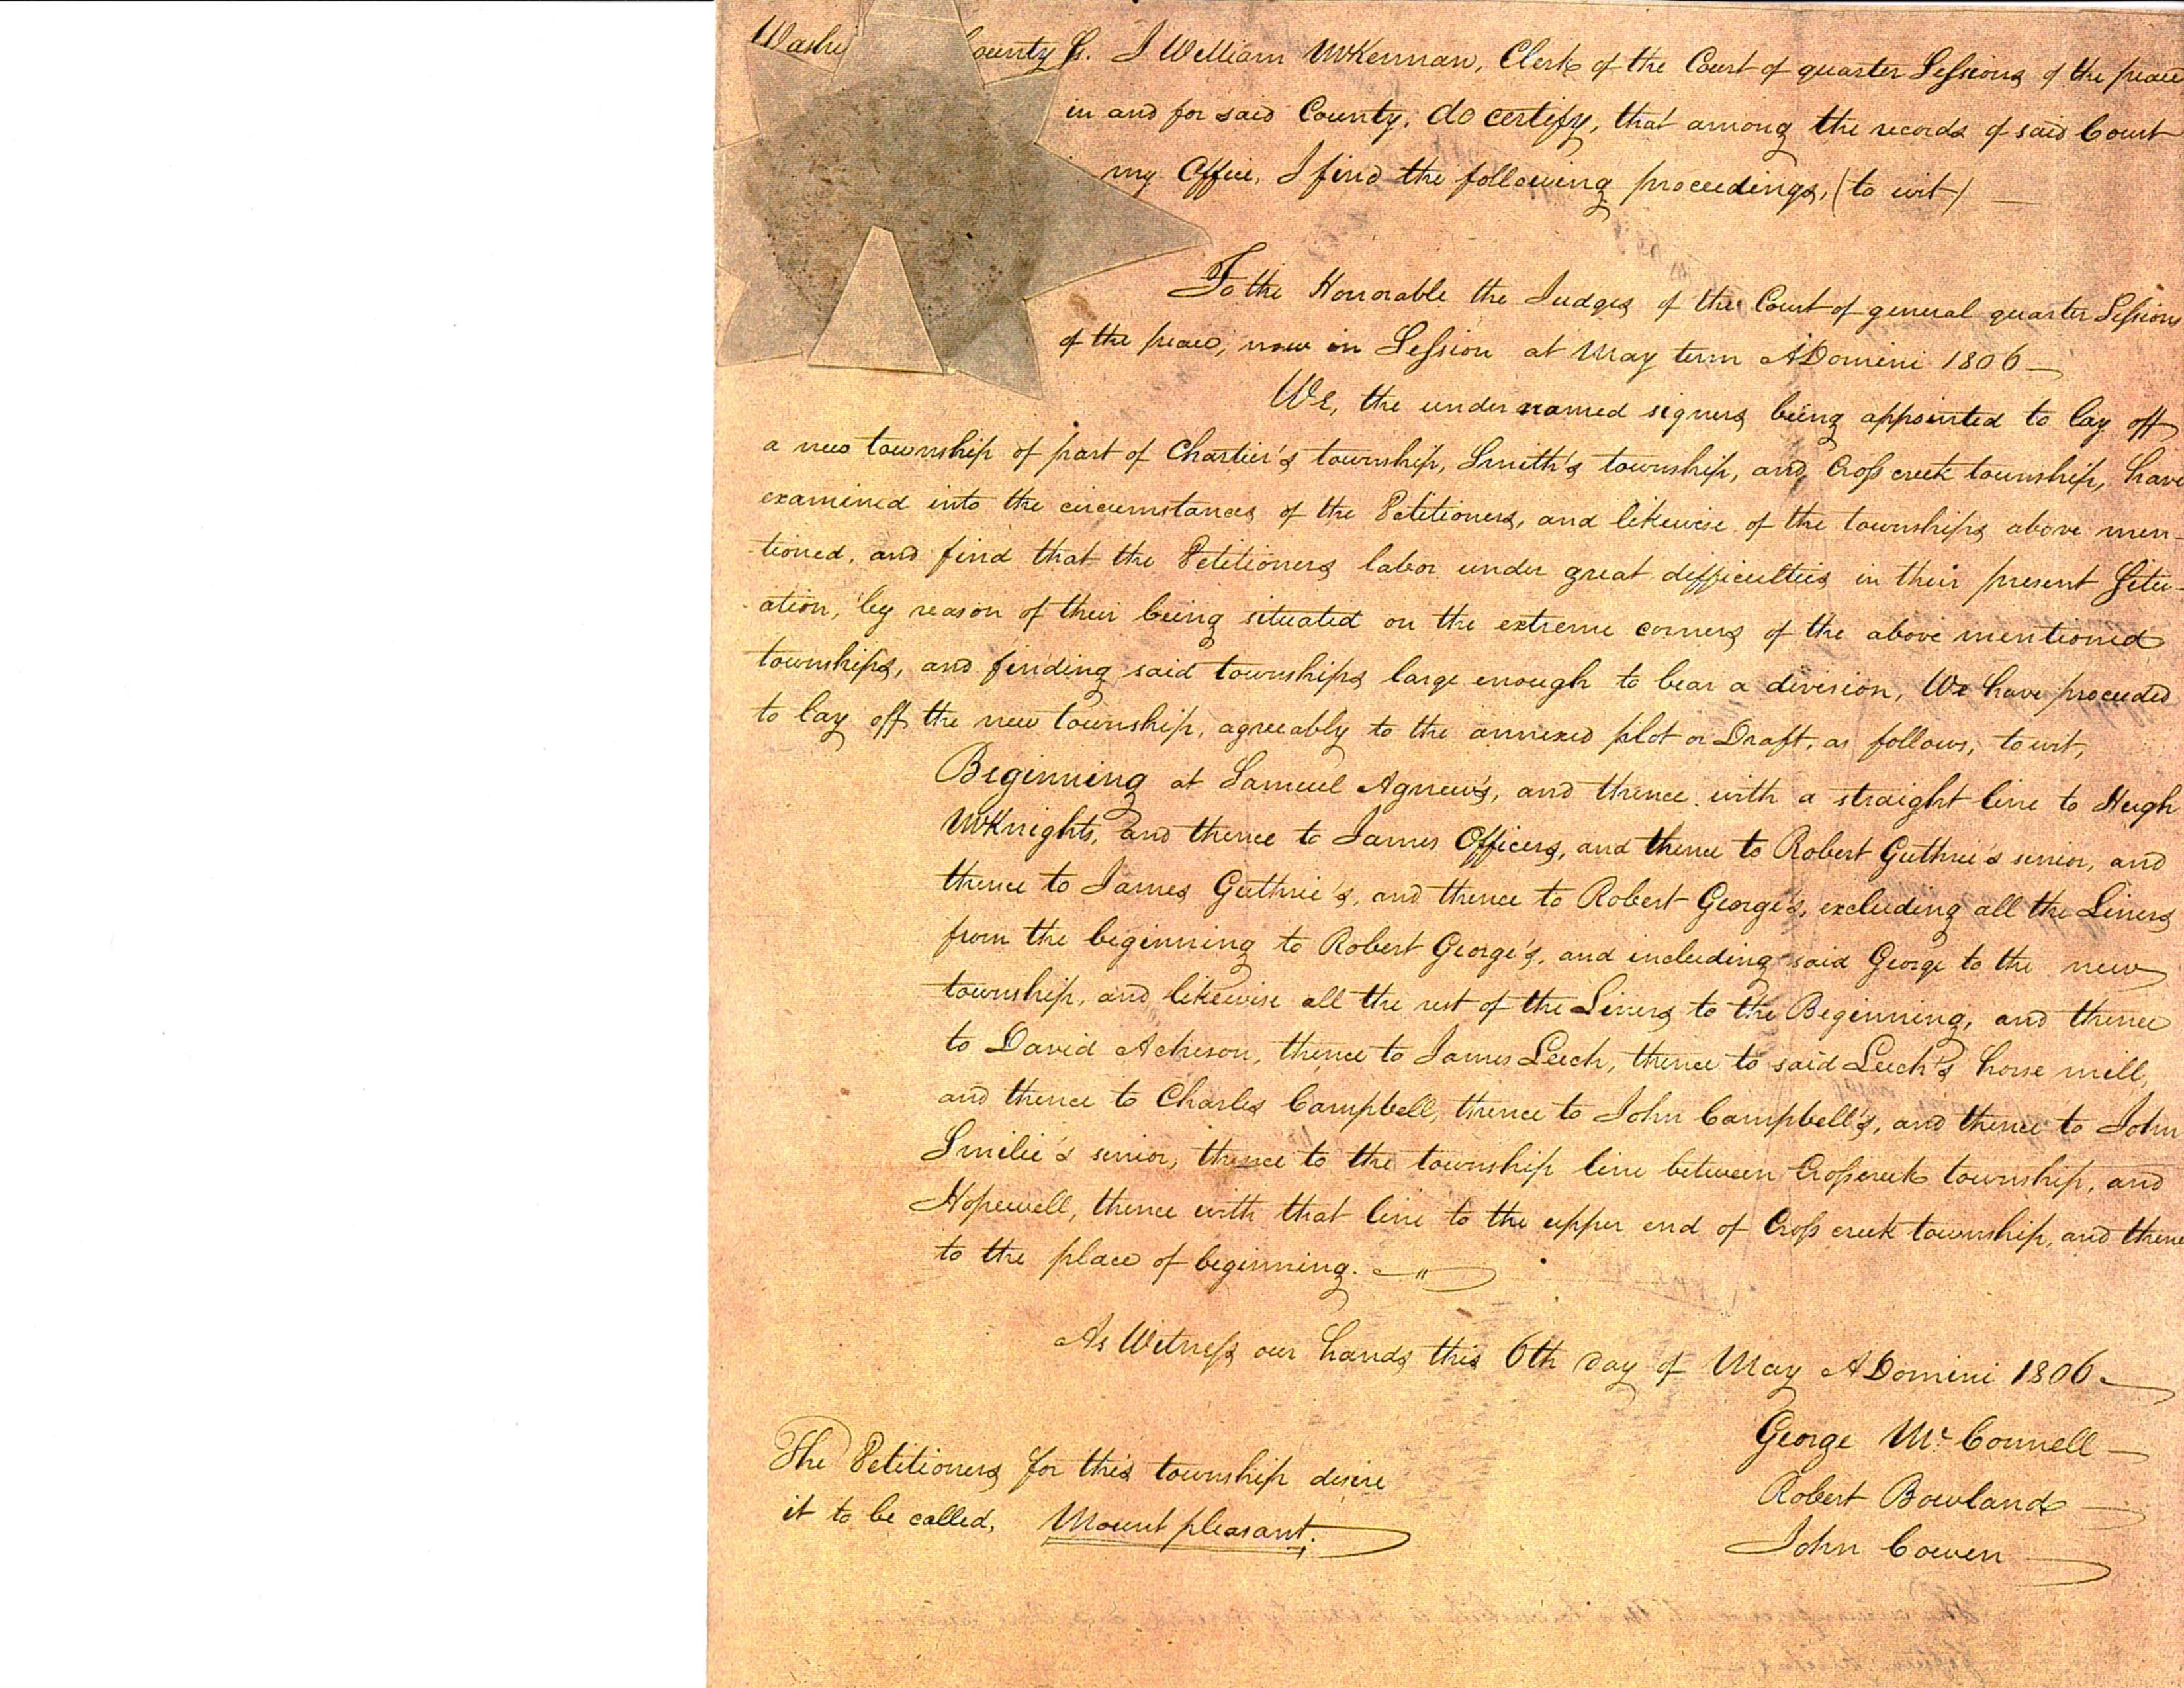 Washi County Ss. I William McKennan, Clerk of the Court of quarter Sessions of the peace
in and for said County, do certify, that among the records of said Court
my Office, I find the following proceedings, (to wit)
To the Honorable the Judges of the Court of general quarter Sessions
of the peace, now in Session at May term ADomini 1806
We, the undernamed signers being appointed to lay off
a new township of part of Chartier's township, Smith's township, and Cross creek township, have
examined into the circumstances of the Petitioners, and likewise of the townships above men-
tioned, and find that the Petitioners labor under great difficulties in their present Situ-
ation, by reason of their being situated on the extreme corners of the above mentioned
townships, and finding said townships large enough to bear a division, We have proceeded
to lay off the new township, agreeably to the annexed plot or Draft, as follows, to wit,
Beginning at Samuel Agnew's, and thence with a straight line to Hugh
McKnights, and thence to James Officers, and thence to Robert Guthrie's senior, and
thence to James Guthrie's, and thence to Robert George's, excluding all the Liners
from the beginning to Robert George's, and including said George to the new
township, and likewise all the rest of the Liners to the Beginning, and thence
to David Acheson, thence to James Leech, thence to said Leech's horse mill,
and thence to Charles Campbell, thence to John Campbell's, and thence to John
Smilie's senior, thence to the township line between Cross creek township, and
Hopewell, thence with that line to the upper end of Cross creek township, and thence
to the place of beginning.
As Witness our hands this 6th day of May ADomini 1806
George Mc Connell
Robert Bowland
John Cowen
The Petitioners for this township desire
it to be called, Mount pleasant.